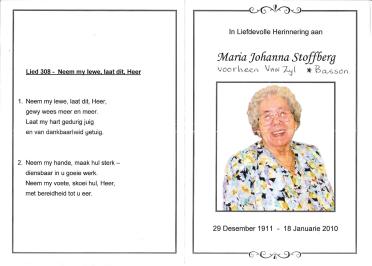 Lied 308 - Neem my lewe, laat dit, Heer
1. Neem my lewe, laat dit, Heer,
gewy wees meer en meer.
Laat my hart gedurig juig
en van dankbaarheid getuig.
2. Neem my hande, maak hul sterk –
diensbaar in u goeie werk.
Neem my voete, skoei hul, Heer,
met bereidheid tot u eer.
In Liefdevolle Herinnering aan
Maria Johanna Stoffberg
voorheen Van Zyl * Basson
29 Desember 1911 - 18 Januarie 2010